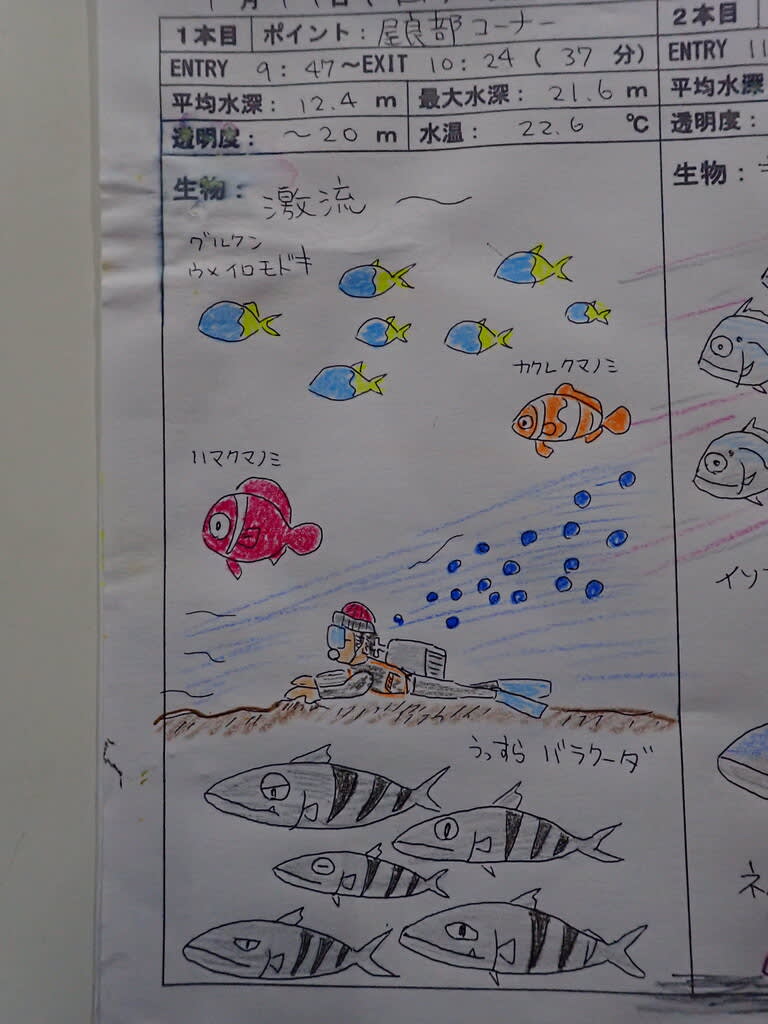 1本目 ポイント: 屋良部コーナー
ENTRY 9:47〜EXIT 10:24 (37分)
平均水深: 12.4 m 最大水深: 21.6 m
透明度: 〜20 m 水温: 22.6 ℃
生物: 激流 〜
グルクン
ウメイロモドキ
カクレクマノミ
ハマクマノミ
うっすら バラクーダ
2本目
ENTRY 11
平均水深
透明度:
生物:
イソ